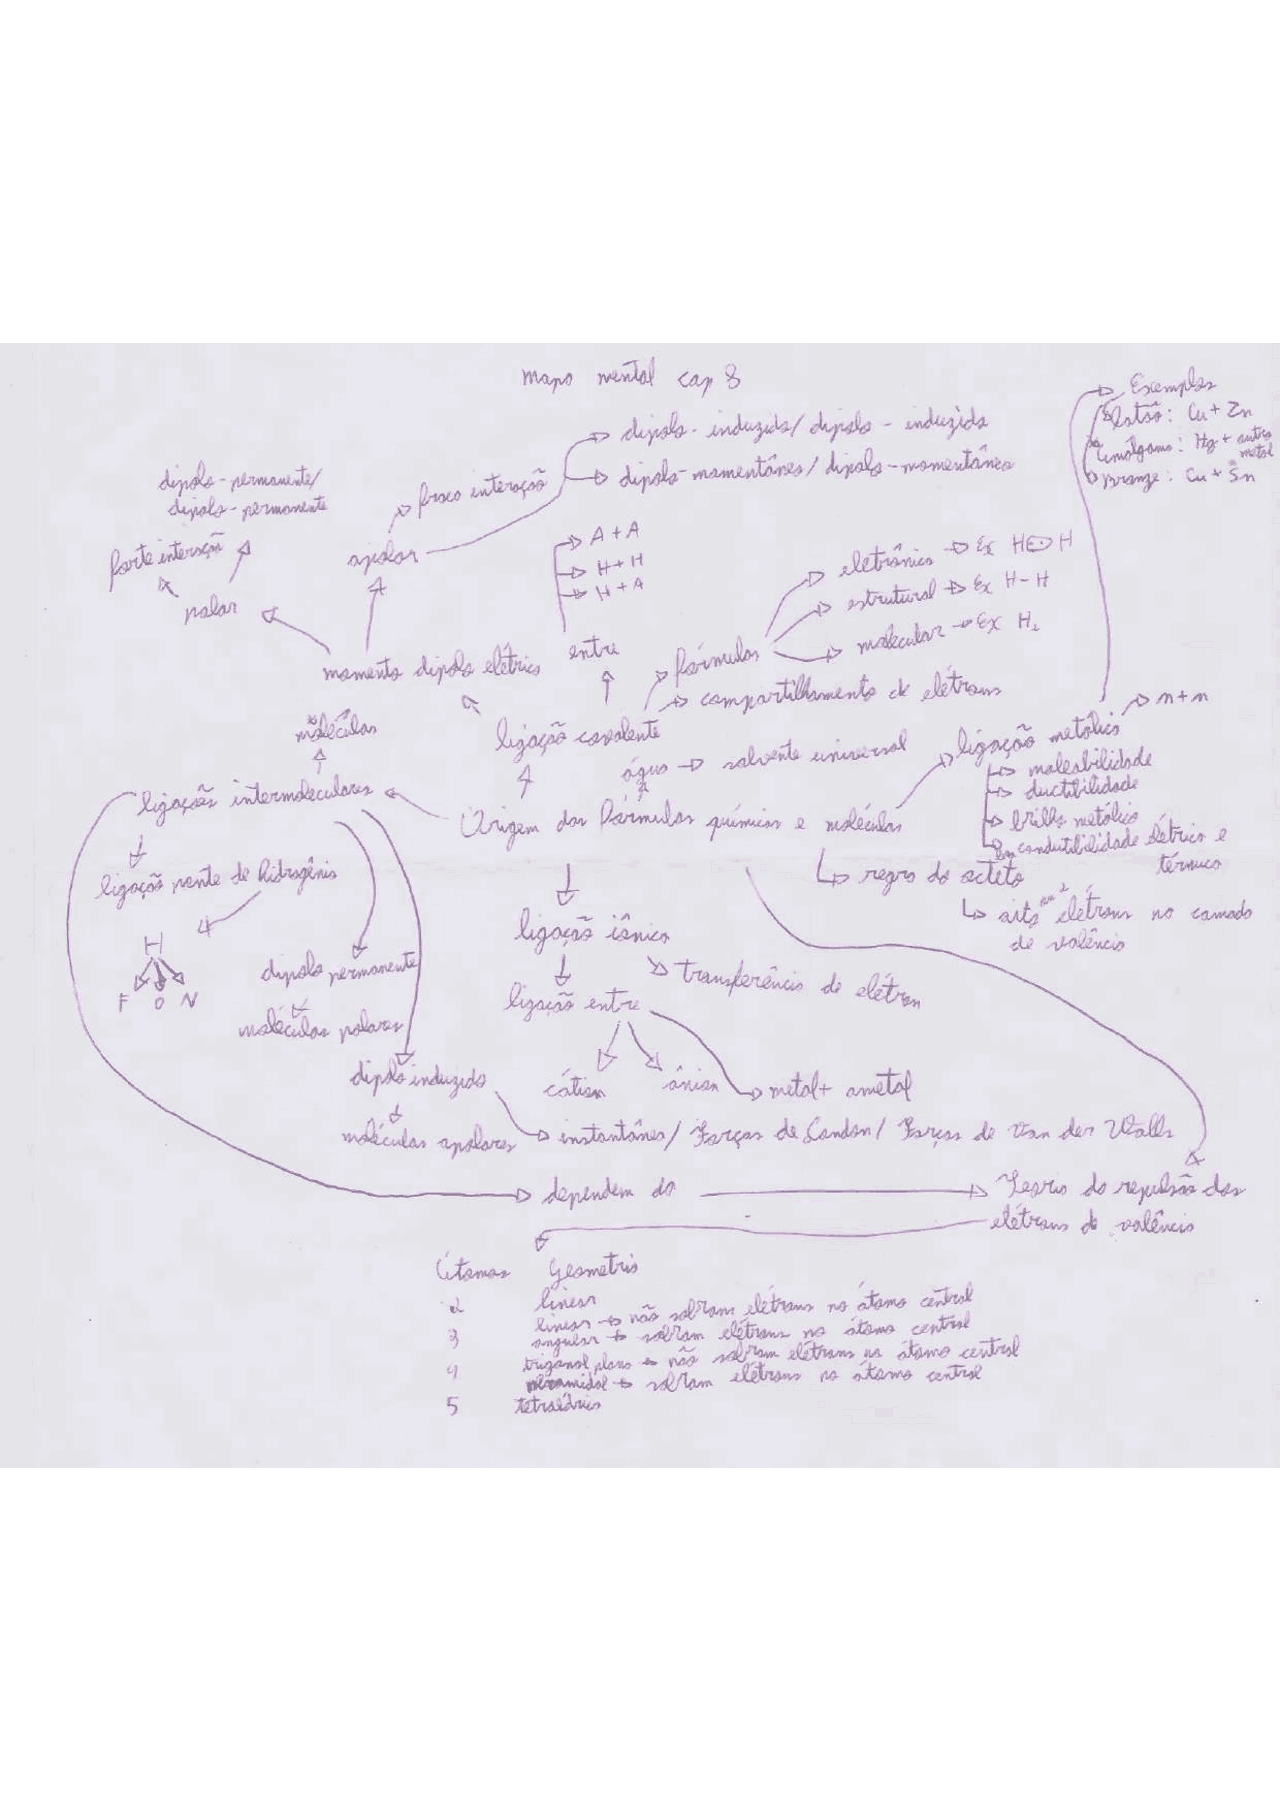 Mapa mental cap 8
Exemplos
latão: Cu + Zn
Amálgama: Hg + outro metal
Bronze: Cu + Sn
dipolo-induzido/dipolo-induzido
dipolo-momentâneo/dipolo-momentâneo
fraca interação
dipolo-permanente/
dipolo-permanente
forte interação
apolar
polar
A + A
H + H
H + A
eletrônica Ex H H
estrutural Ex H-H
molecular Ex H₂
momento dipolo elétrico
entre
fórmulas
compartilhamento de elétrons
moléculas
ligação covalente
ligação metálica
m+m
água
solvente universal
maleabilidade
ductibilidade
brilho metálico
boa condutibilidade elétrica e
térmica
ligações intermoleculares
Origem das fórmulas químicas e moléculas
regra do octeto
oito ou 2 elétrons na camada
de valência
ligação ponte de hidrogênio
H
F O N
dipolo permanente
moléculas polares
ligação iônica
transferência de elétron
ligação entre
dipolo induzido
cátion
ânion
metal + ametal
moléculas apolares
instantâneo/ Forças de London/ Forças de Van der Walls
dependem da
Teoria da repulsão dos
elétrons de valência
Átomos Geometria
2 linear
linear não sobram elétrons no átomo central
3 angular sobram elétrons no átomo central
trigonal plana não sobram elétrons no átomo central
4 piramidal sobram elétrons no átomo central
5 tetraédrica